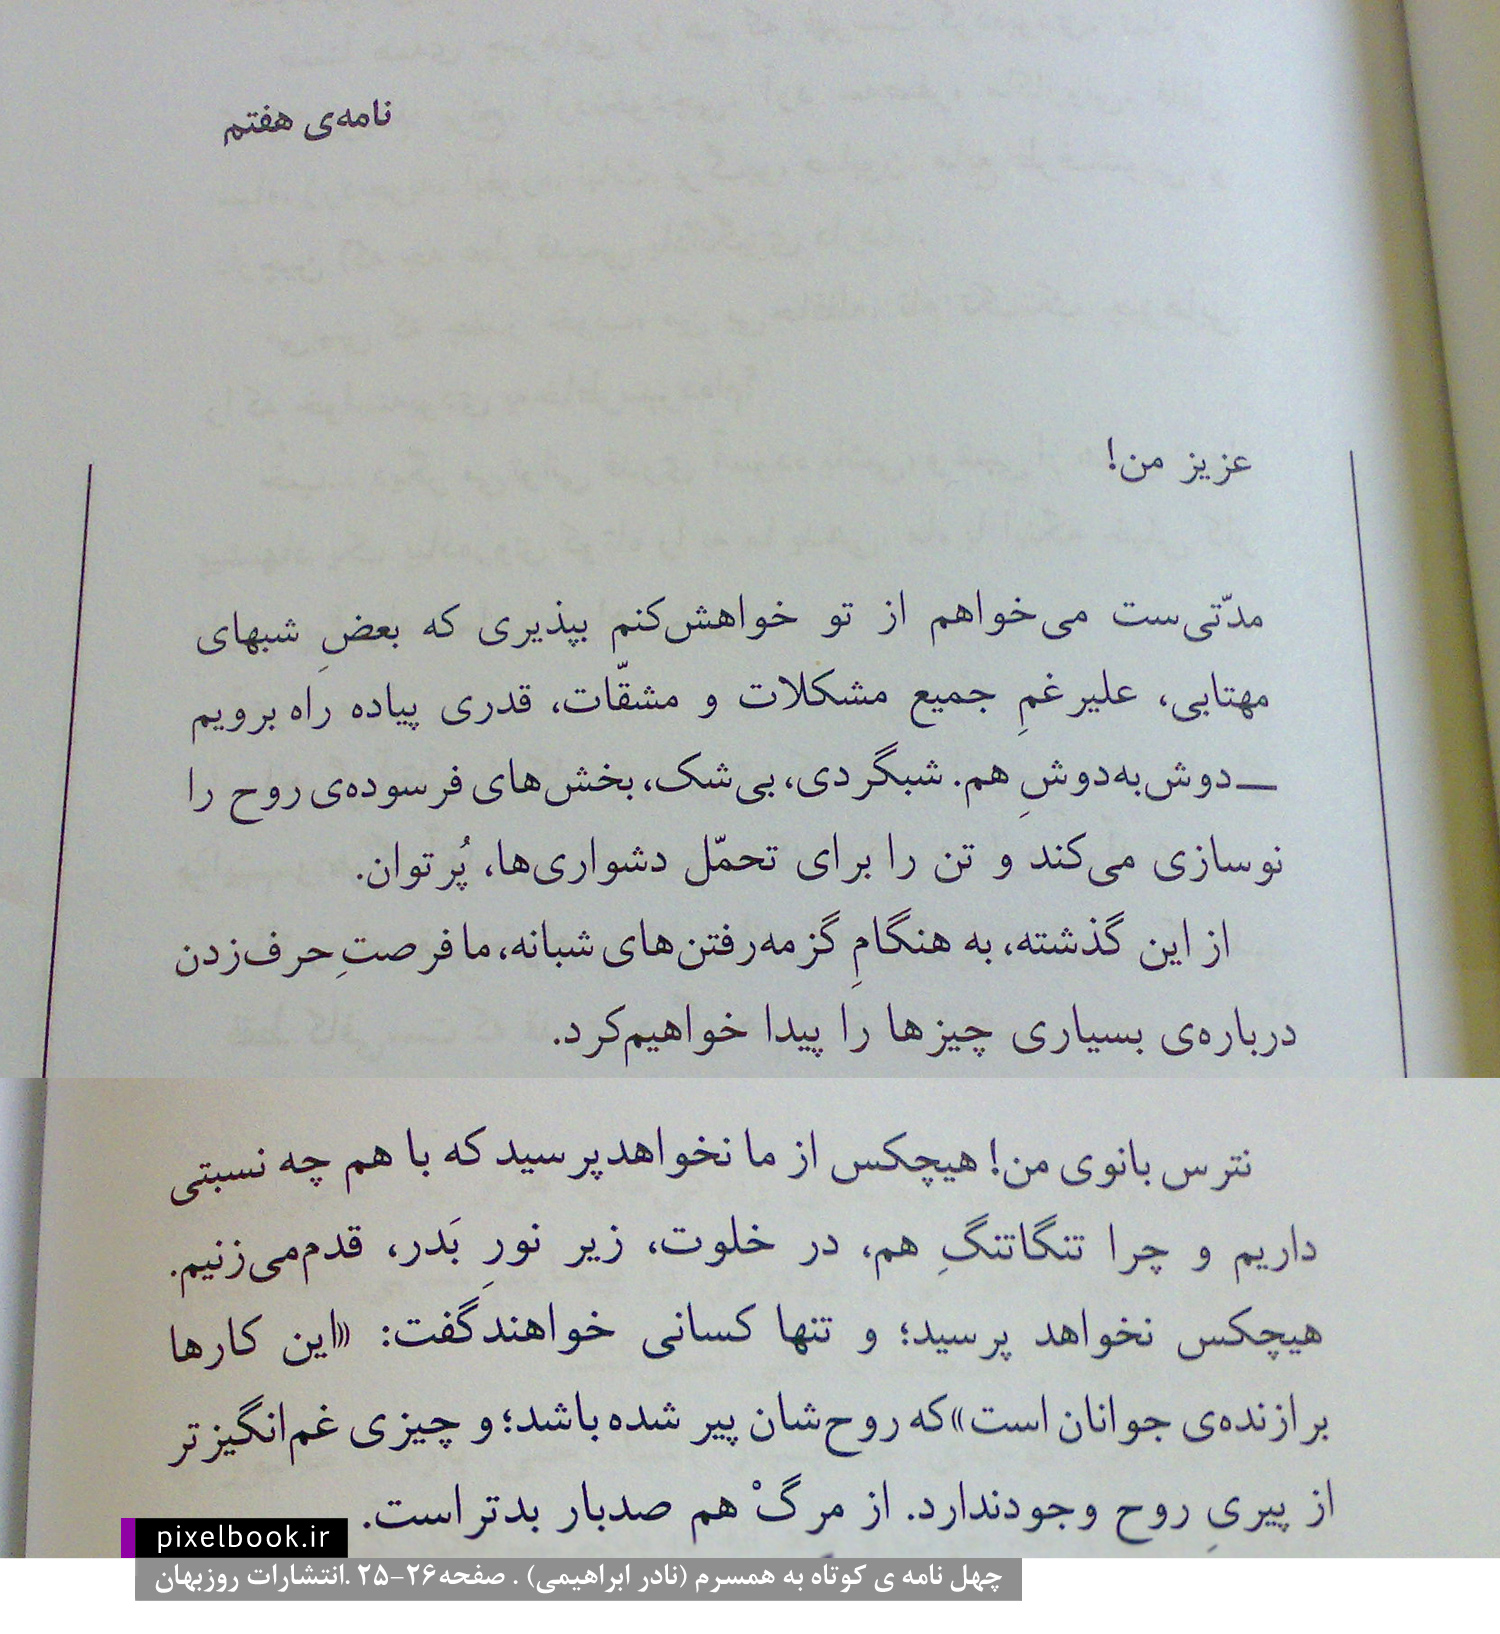 نامه‌ی هفتم
عزیز من!
مدّتی‌ست می‌خواهم از تو خواهش‌کنم بپذیری که بعضِ شبهای
مهتابی، علیرغمِ جمیع مشکلات و مشقّات، قدری پیاده راه برویم
ــ دوش‌به‌دوشِ هم. شبگردی، بی‌شک، بخش‌های فرسوده‌ی روح را
نوسازی می‌کند و تن را برای تحمّل دشواری‌ها، پُرتوان.
از این گذشته، به هنگامِ گزمه‌رفتن‌های شبانه، ما فرصتِ حرف‌زدن
درباره‌ی بسیاری چیزها را پیدا خواهیم‌کرد.
نترس بانوی من! هیچکس از ما نخواهدپرسید که با هم چه نسبتی
داریم و چرا تنگاتنگِ هم، در خلوت، زیر نورِ بَدر، قدم‌می‌زنیم.
هیچکس نخواهد پرسید؛ و تنها کسانی خواهندگفت: «این کارها
برازنده‌ی جوانان است» که روح‌شان پیر شده باشد؛ و چیزی غم‌انگیزتر
از پیریِ روح وجودندارد. از مرگْ هم صدبار بدتر است.
pixelbook.ir
چهل نامه ی کوتاه به همسرم (نادر ابراهیمی) . صفحه۲۶-۲۵ .انتشارات روزبهان